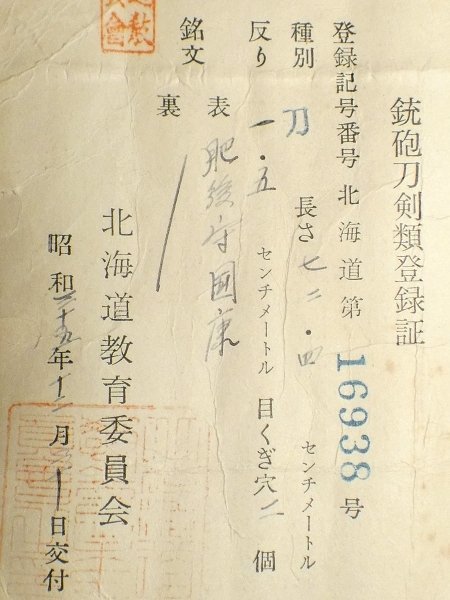 銃砲刀剣類登録証
登録記号番号 北海道第 16938 号
種別 刀 長さ 七二・四 センチメートル
反り 一・五 センチメートル 目くぎ穴 二 個
銘文 表 肥後守國康
裏
北海道教育委員会
昭和 年十二月 日交付